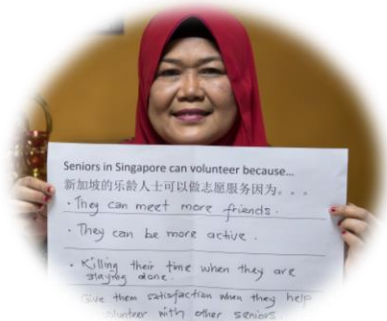 Seniors in Singapore can volunteer because...
新加坡的乐龄人士可以做志愿服务因为。。。
• They can meet more friends.
• They can be more active.
• Killing their time when they are
staying alone.
Give them satisfaction when they help
volunteer with other seniors.